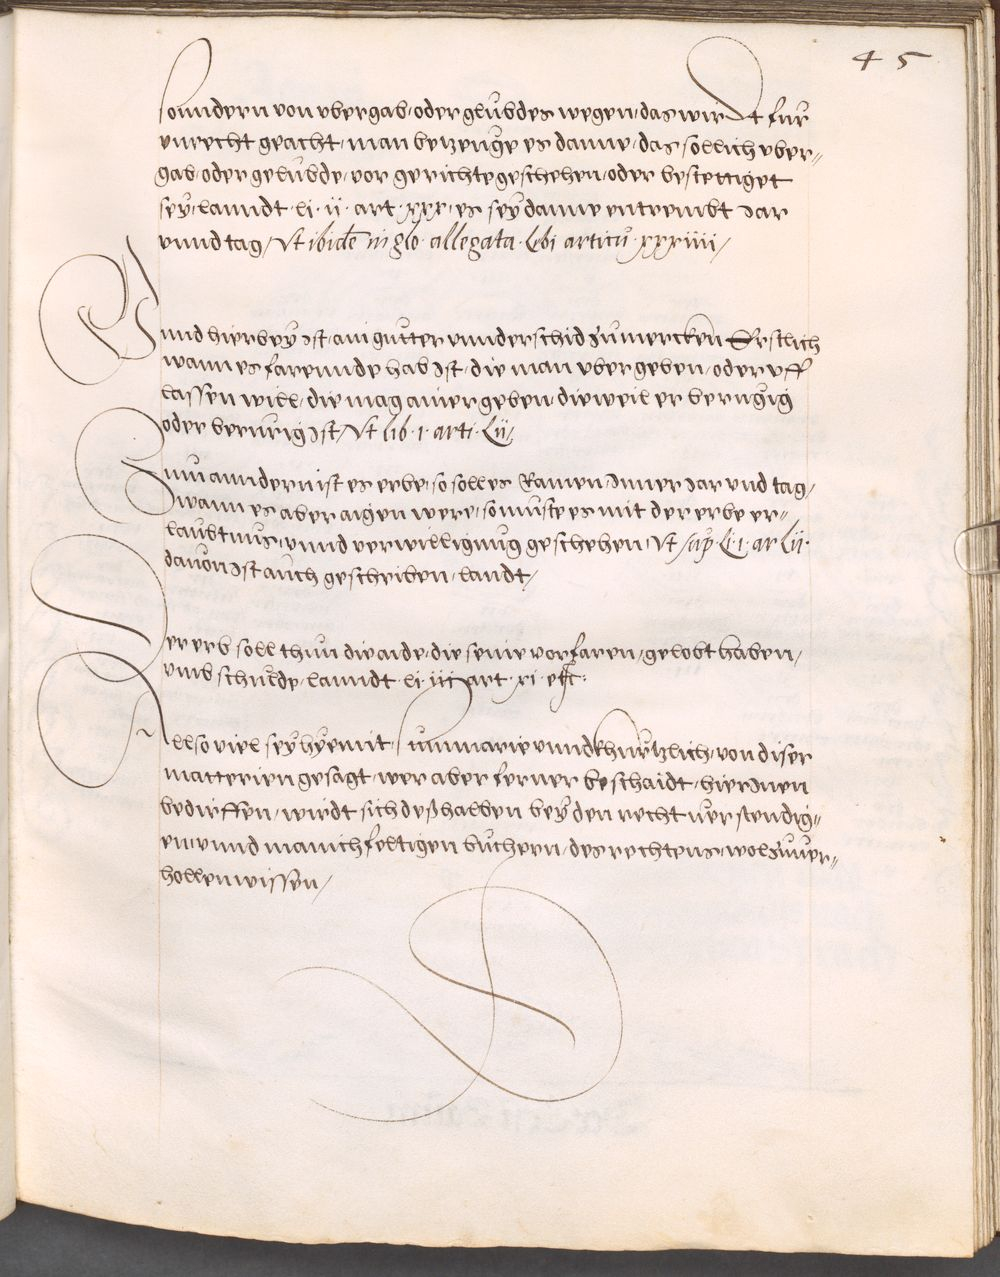 45
sonndern von vbergab, oder glubdes wegen, das wirdt fur
vnrecht geacht, man bezeuge es danne, das sollich vber„
gab, oder gelubde, vor gerichte geschehen, oder bestettiget
sey, lanndt · li · ii · art · xxx, es sey danne entwembt Jar
vnnd tag, Vt ibidē in glo · allegata · Libi articu᷒ · xxxiiii /
Vnnd hierbey Ist ain gutter vnnderschid zu mercken Erstlich
wann es farennde hab Ist, die man vbergeben, oder vff
lassen will, die mag ainer geben, dieweil er berugig
oder berurig Ist, Vt lib · i · arti · Lii /
Zum anndern ist es erbe, so soll es Ramen, Inner Jar vnd tag,
wann es aber aigen were, so muste es mit der erbe er„
laubtnus, vnnd verwilligung geschehen, Vt sup̄ · Li · i · ar Lii ·
dauon Ist auch geschriben, landt /
Der erb soll thun die aide, die seine vorfaren, gelobt haben,
vmb schulde, lanndt · li · iii art · xi · etc :
Allso viel sey hyemit, summarie vnnd khurtzlich, von diser
matterien gesagt, wer aber ferner beschaidt, hierInen
bedurffen, wirdt sich deßhalben bey den recht uerstendig„
en, vnnd manichfeltigen buchern, des rechtens, wol zuuer„
hollen wissen /